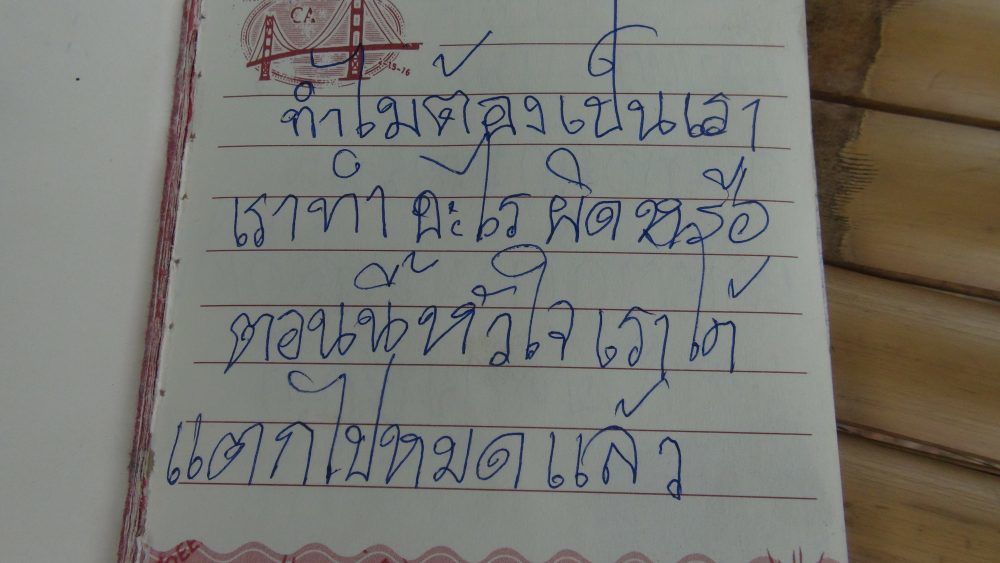 CA
-15-16
ทำไมต้องเป็นเรา
เราทำอะไรผิดหรือ
ตอนนี้หัวใจเราได้
แตกไปหมดแล้ว